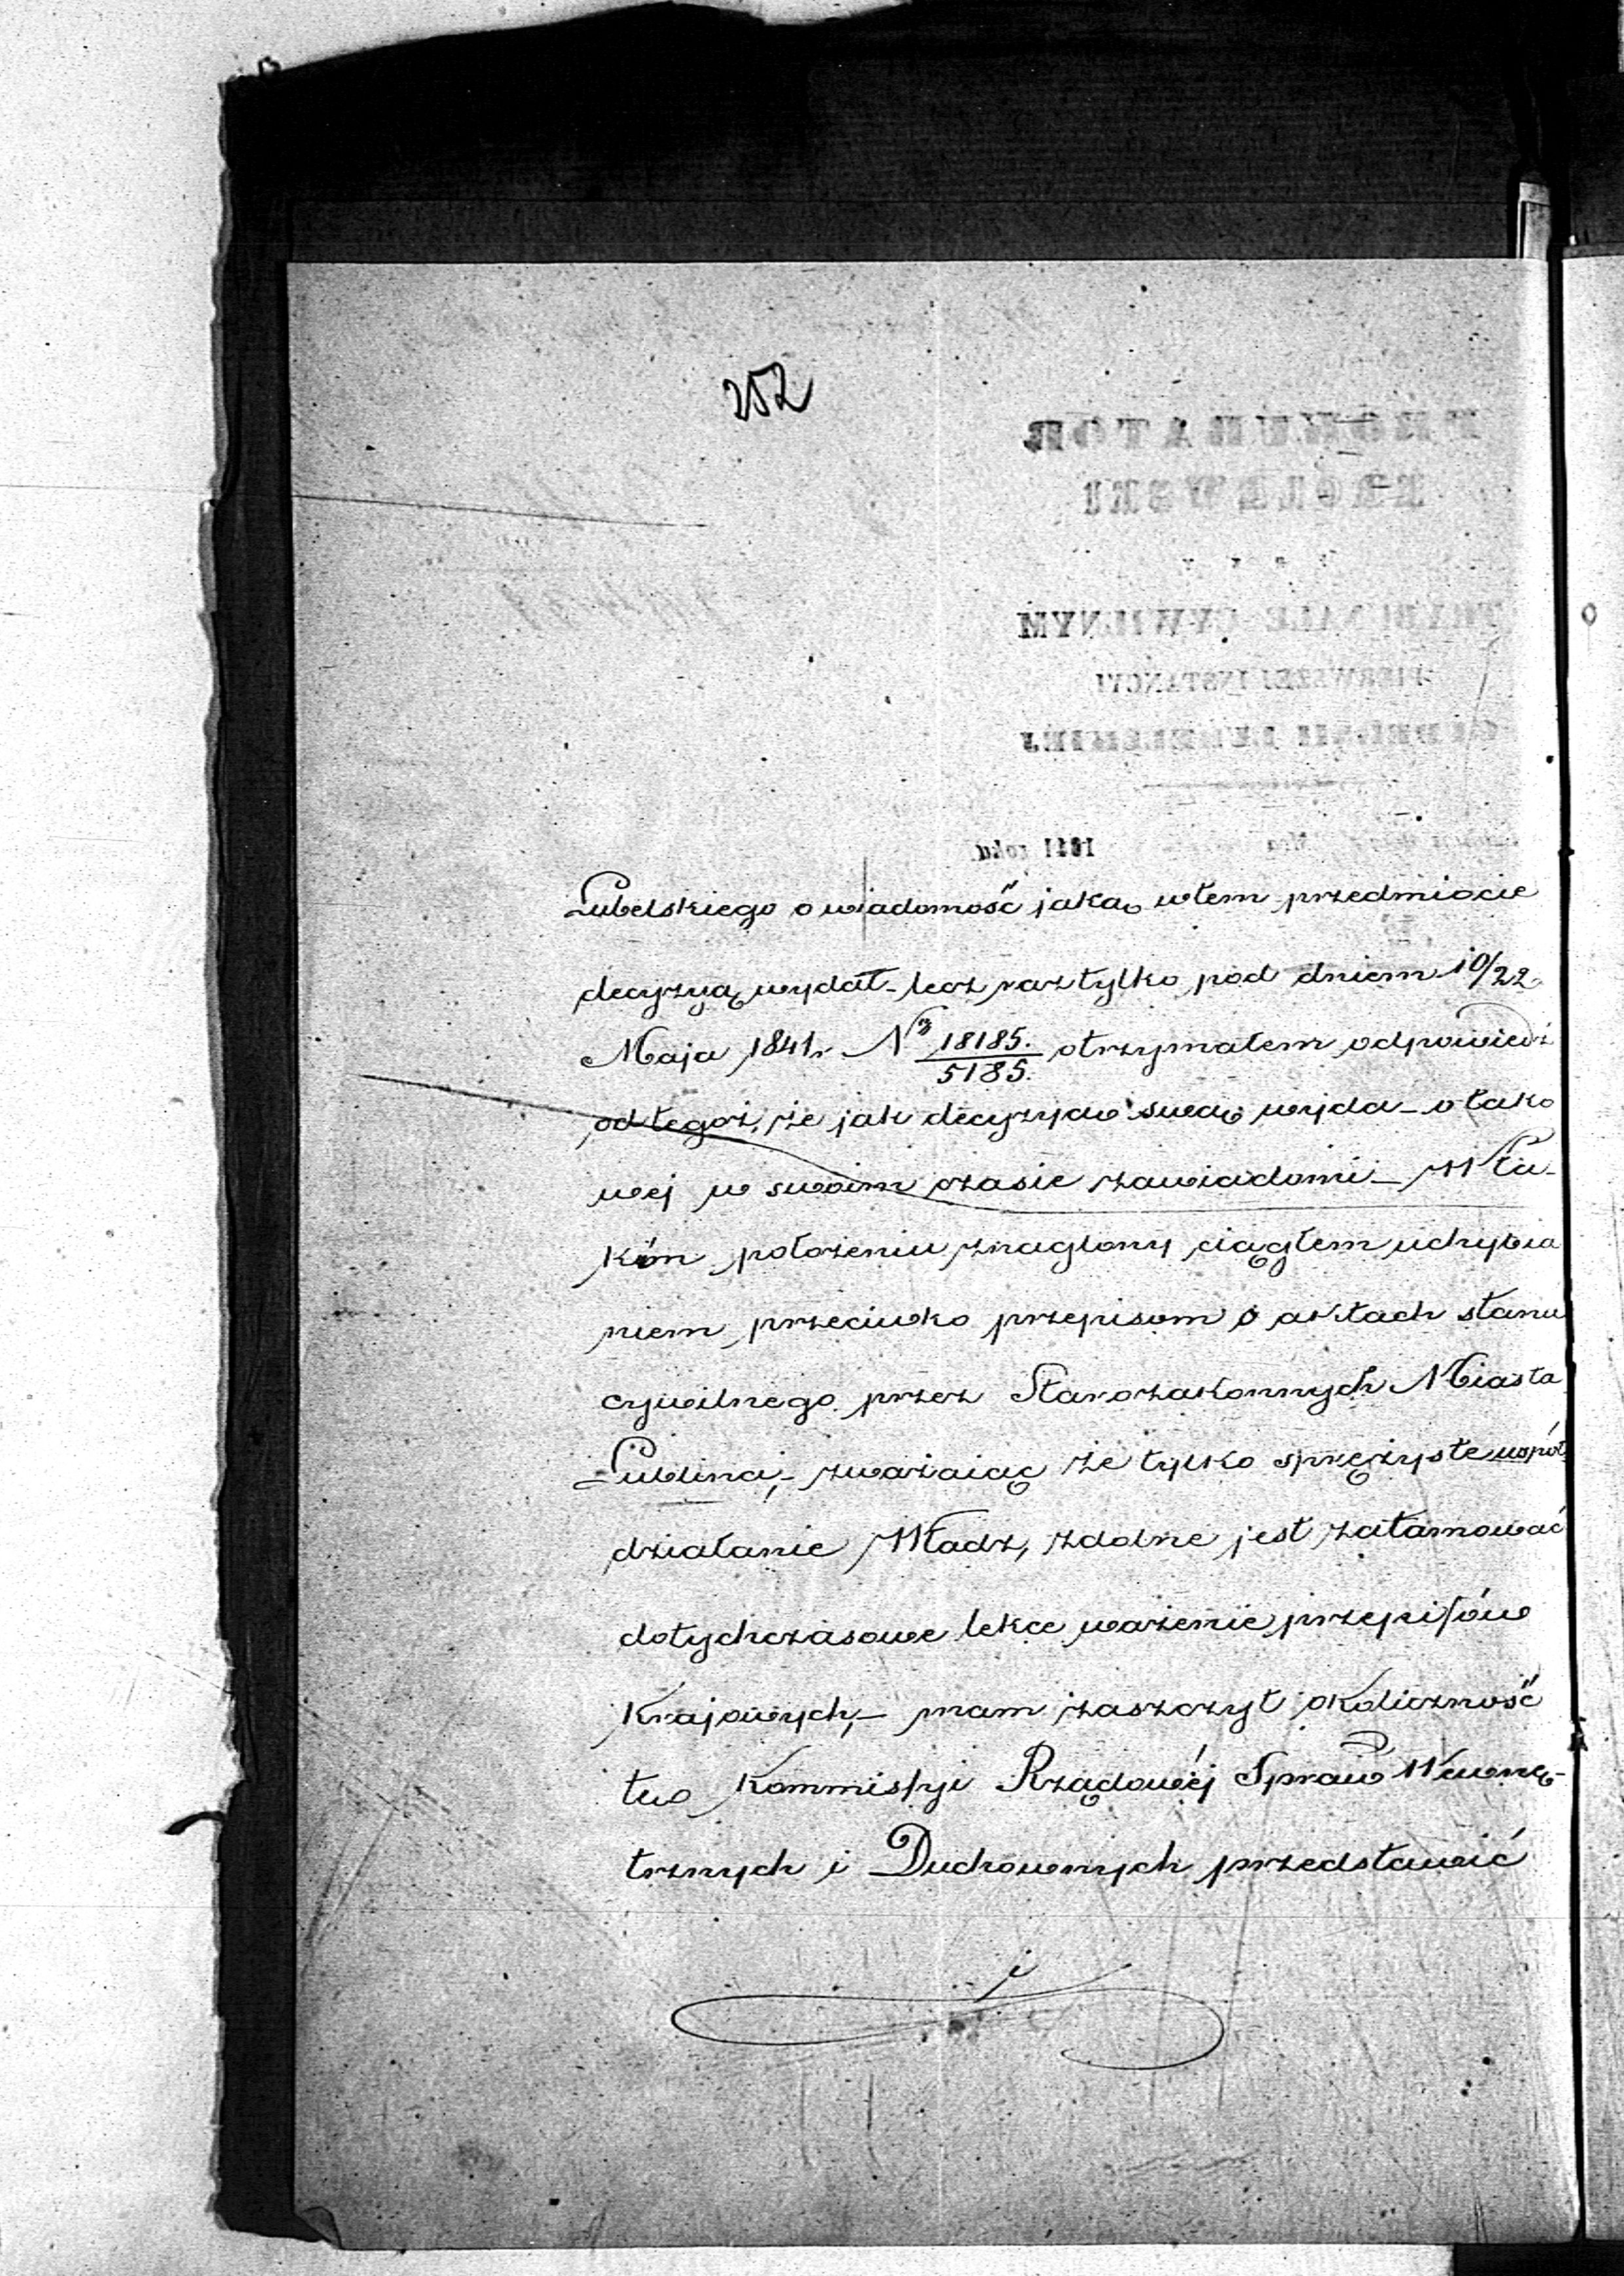 252
Lubelskiego o wiadomość jaką wtem przedmiocie
decyzyą wydał – lecz raz tylko pod dniem 10/22
Maja 1841r. No 18185./5185. otrzymałem odpowiedź
od tegoż, że jak decyzyą swą wyda – o tako
wej w swoim czasie zawiadomi – W ta-
kim położeniu znaglony ciągłem uchybia
niem przeciwko przepisom o aktach stanu
cywilnego przez Starozakonnych Miasta
Lublina, – zważaiąc że tylko sprężyste wspól
działanie Władz, zdolne jest zatamować
dotychczasowe lekce ważenie przepisów
Krajowych, – mam zaszczyt okoliczność
tę Kommissyi Rządowéj Spraw Wewnę-
trznych i Duchownych przedstawić
i